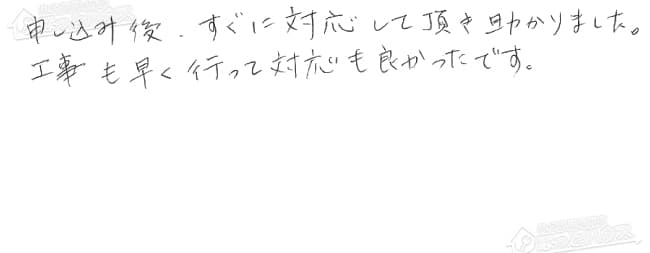 申し込み後、すぐに対応して頂き助かりました。
工事も早く行って対応も良かったです。